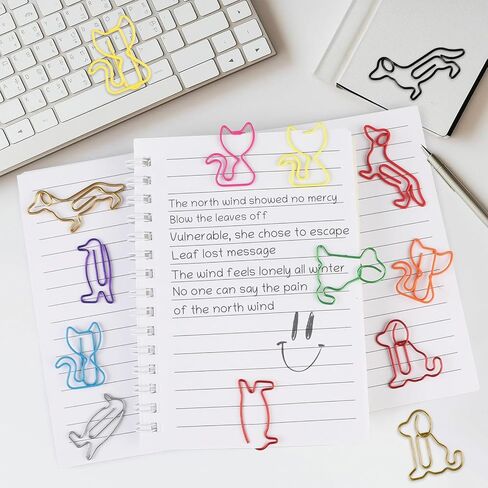 The north wind showed no mercy
Blow the leaves off
Vulnerable, she chose to escape
Leaf lost message
The wind feels lonely all winter
No one can say the pain
of the north wind